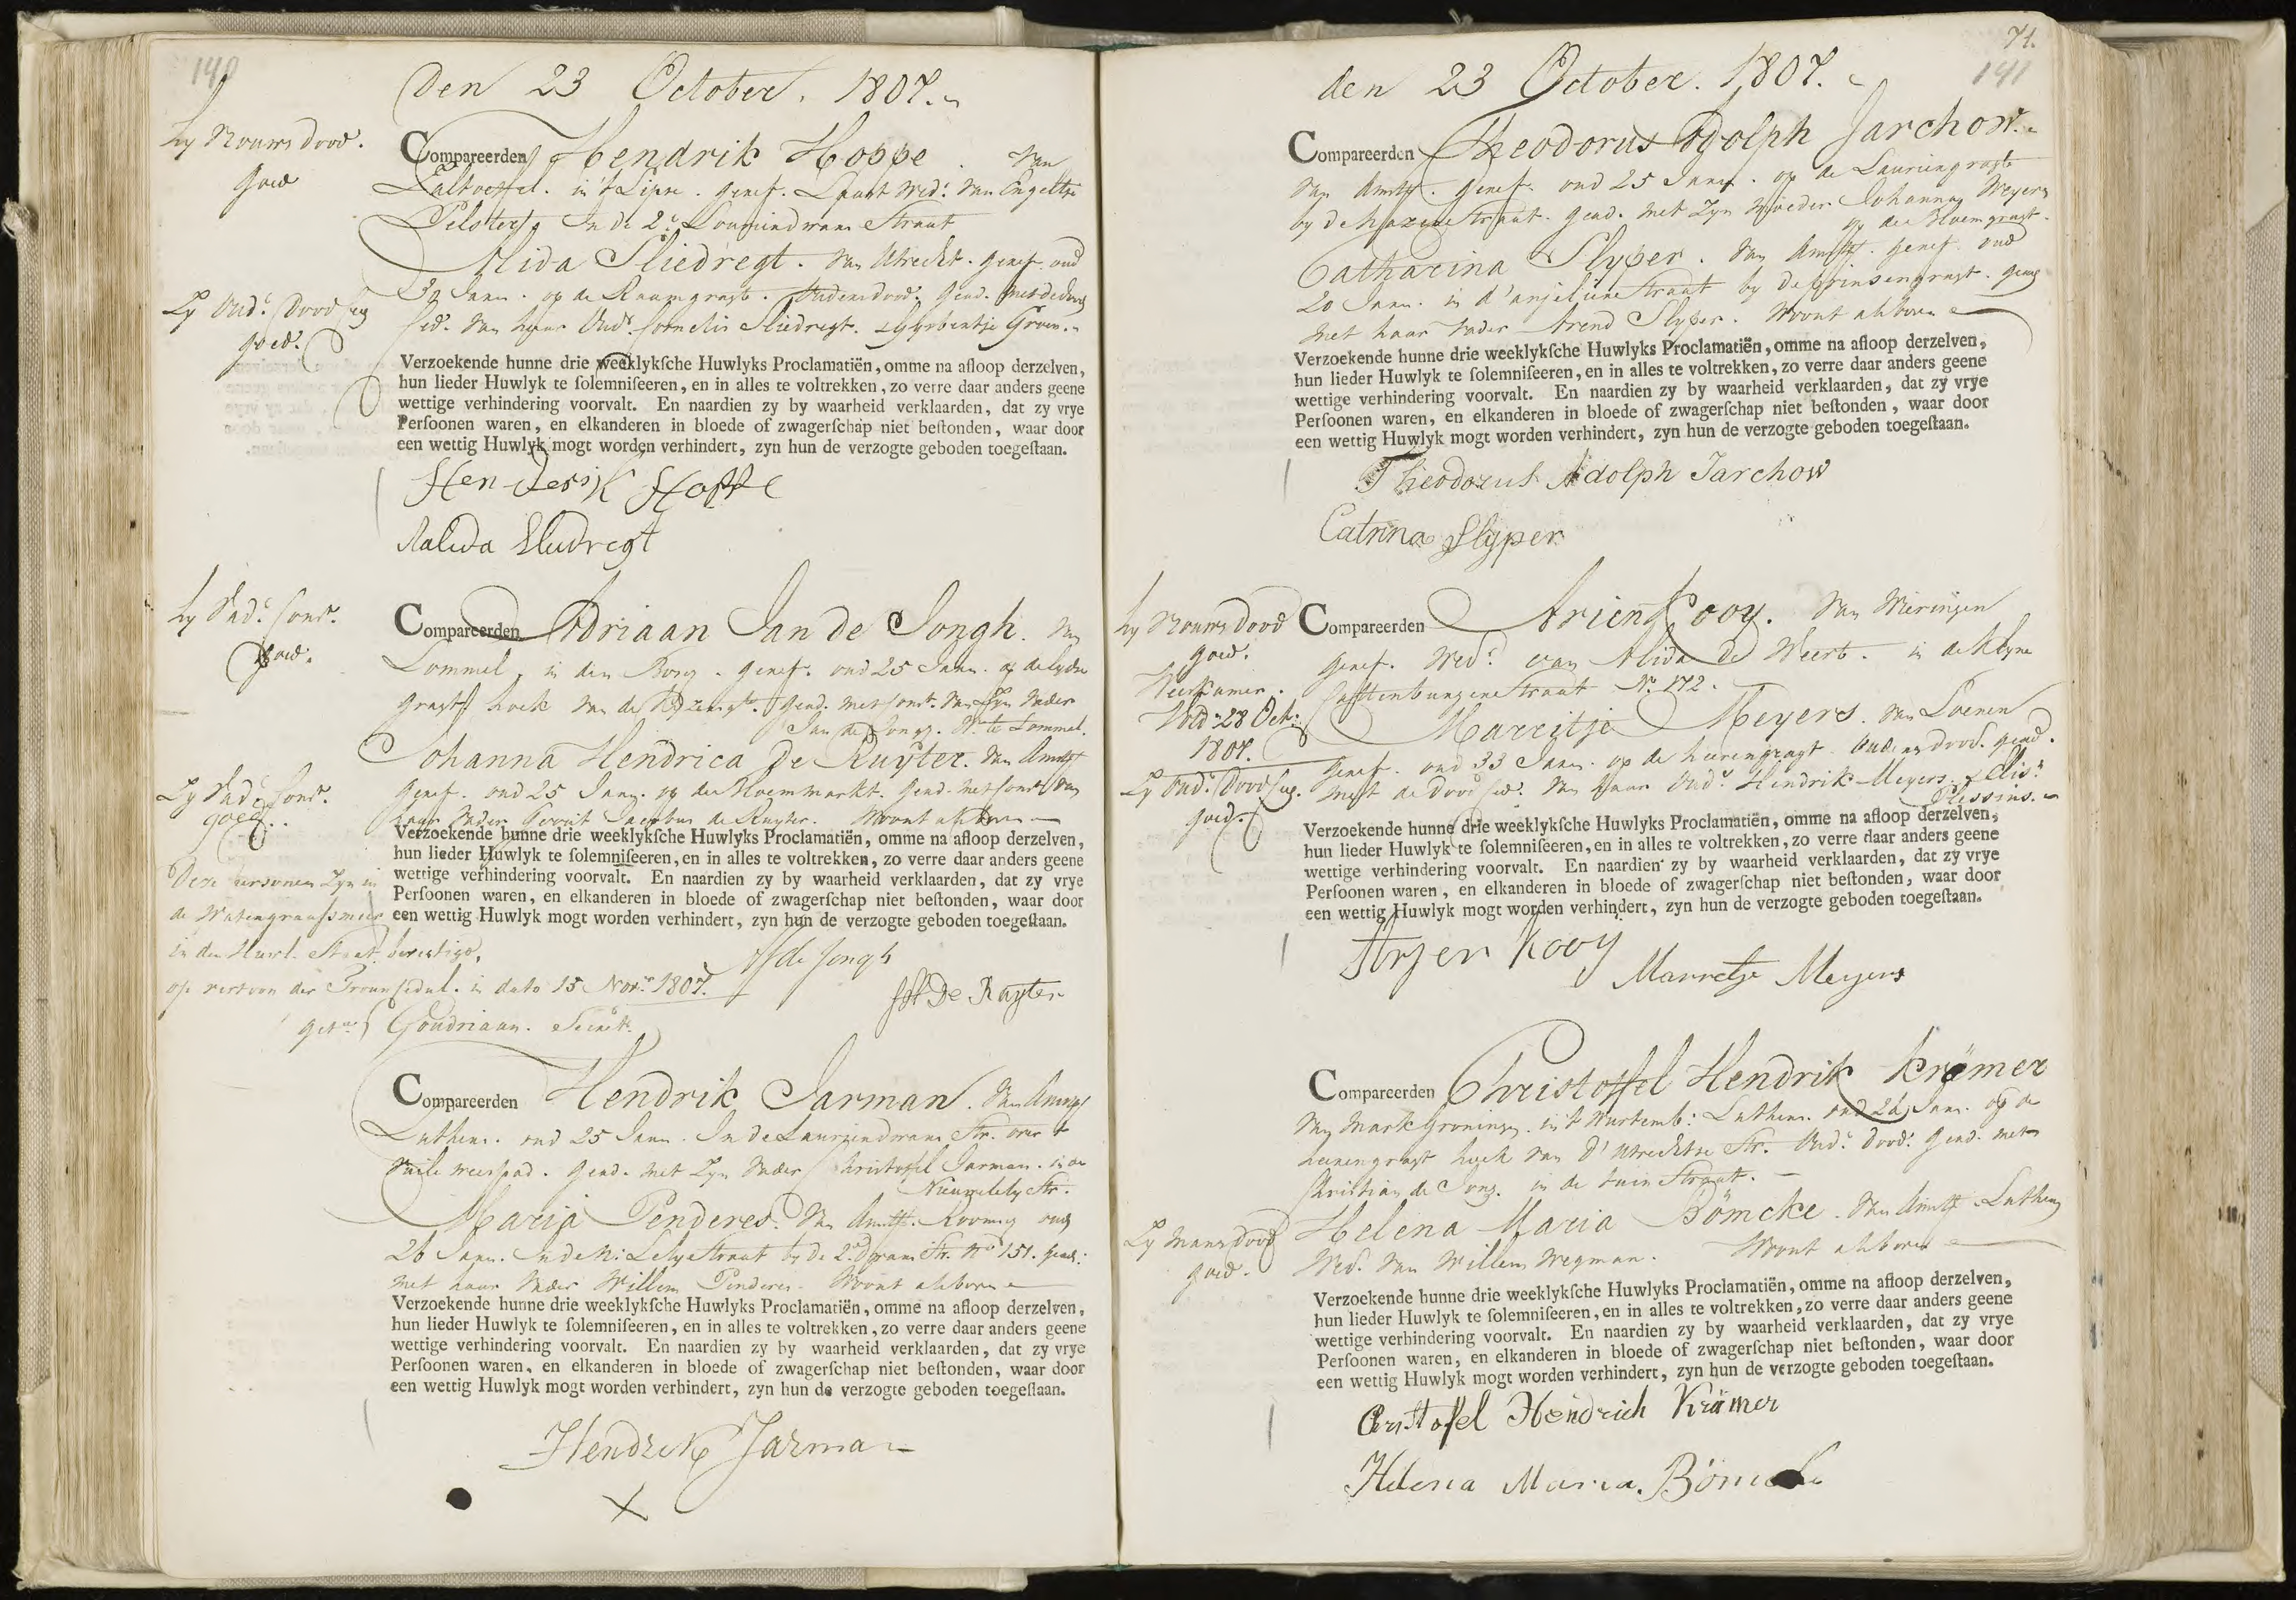 140
Den 23 October. 1807.
hy Vrouws dood.
goed
Compareerden Hendrik Hoppe. Van
in 't Lipse. geref. Laast Wed.r van Engeltie
Pelster. In de 2.e Lourierdwars Straat
Alida Sliedregt. Van Utrecht. geref. oud
Jaar. op de Raamgragt. Vaders dood. gead.
Zy Oud.s Dood Ceg
goed.
ced. van haar Oud.s Cornelis Sliedregt. & Groen.
Verzoekende hunne drie weeklykſche Huwlyks Proclamatiën, omme na afloop derzelven,
hun lieder Huwlyk te ſolemniſeeren, en in alles te voltrekken, zo verre daar anders geene
wettige verhindering voorvalt. En naardien zy by waarheid verklaarden, dat zy vrye
Perſoonen waren, en elkanderen in bloede of zwagerſchap niet beſtonden, waar door
een wettig Huwlyk mogt worden verhindert, zyn hun de verzogte geboden toegeſtaan.
Henderik Hoppe
Aalida Sludregt
hy Vad.s Cons.t
goed.
Compareerden Adriaan Jan de Jongh. Van
Lommel, in den Borg. geref. oud 25 Jaar. op de Lydse
gragt hoek van de gead. met Const. van Zyn Vader
Jan de Jongh. W. te Lommel.
Johanna Hendrica De Ruyter. Van Amst
geref. oud 25 Jaar. op de Bloemmarkt. Gead. met Const van
Zy Vad.s Cons.t
goed.
haar Vader Gerrit Jacobus de Ruyter. Woont als boven
Verzoekende hunne drie weeklykſche Huwlyks Proclamatiën, omme na afloop derzelven,
hun lieder Huwlyk te ſolemniſeeren, en in alles te voltrekken, zo verre daar anders geene
wettige verhindering voorvalt. En naardien zy by waarheid verklaarden, dat zy vrye
Perſoonen waren, en elkanderen in bloede of zwagerſchap niet beſtonden, waar door
een wettig Huwlyk mogt worden verhindert, zyn hun de verzogte geboden toegeſtaan.
Deze personen Zyn in
de Watergraafsmeer
in den Huwl. Staat bevestigd,
op vertoon der Trouwcedul. in dato 15 Nov.r 1807.
get. Goudriaan. Secret.
de Jongh
De Ruyter
Compareerden Hendrik Jarman. Van Amst
Luthers. oud 25 Jaar. In de Laurierdwars Str. over 't
Vuile weespad. Gead. met Zyn Vader Christoffel Jarman. in de
Nieuwelely Str.
Maria Penderes. Van Amst. Rooms oud
26 Jaar. In de N: Lelystraat by de 2.e Dwars Str. N.o 151. Gead:
met haar Vader Willem Penderes. Woont als boven
Verzoekende hunne drie weeklykſche Huwlyks Proclamatiën, omme na afloop derzelven,
hun lieder Huwlyk te ſolemniſeeren, en in alles te voltrekken, zo verre daar anders geene
wettige verhindering voorvalt. En naardien zy by waarheid verklaarden, dat zy vrye
Perſoonen waren, en elkanderen in bloede of zwagerſchap niet beſtonden, waar door
een wettig Huwlyk mogt worden verhindert, zyn hun de verzogte geboden toegeſtaan.
Hendrik Jarman
X
71.
141
den 23 October. 1807.
Compareerden Theodorus Adolph Jarchow.
Van Amst. Geref. oud 25 Jaar. op de Lauriergragt
by de hazenstraat. Gead. met Zyn Moeder Johanna Meyers
op de Bloemgragt.
Catharina Slyper. Van Amst. Geref. oud
20 Jaar. in d'anjeliersstraat by de prinsengragt. Gead
met haar Vader Arend Slyper. Woont als boven
Verzoekende hunne drie weeklykſche Huwlyks Proclamatiën, omme na afloop derzelven,
hun lieder Huwlyk te ſolemniſeeren, en in alles te voltrekken, zo verre daar anders geene
wettige verhindering voorvalt. En naardien zy by waarheid verklaarden, dat zy vrye
Perſoonen waren, en elkanderen in bloede of zwagerſchap niet beſtonden, waar door
een wettig Huwlyk mogt worden verhindert, zyn hun de verzogte geboden toegeſtaan.
Theodorus Adolph Jarchow
Catrina Slyper
hy Vrouws dood
goed.
Weeskamer.
Vold: 28 Oct:
1807.
Compareerden Arien Kooy. Van Wieringen
Geref. Wed.r van Alida de Weert. in de Klyne
Cattenburgerstraat N.o 172.
Marritje Meyers. Van Loenen
Geref. oud 33 Jaar. op de heerengragt. Ouders dood. Gead.
Zy Oud.s Dood Ceg.
goed.
met de Dood Ced. van haar Oud.s Hendrik Meyers. & Elis.t
Plessins.
Verzoekende hunne drie weeklykſche Huwlyks Proclamatiën, omme na afloop derzelven,
hun lieder Huwlyk te ſolemniſeeren, en in alles te voltrekken, zo verre daar anders geene
wettige verhindering voorvalt. En naardien zy by waarheid verklaarden, dat zy vrye
Perſoonen waren, en elkanderen in bloede of zwagerſchap niet beſtonden, waar door
een wettig Huwlyk mogt worden verhindert, zyn hun de verzogte geboden toegeſtaan.
Aryen Kooy
Marretje Meyers
Compareerden Christoffel Hendrik Krämer
Van MarkGroningen. in 't Wurtemb: Luthers. oud 26 Jaar. op de
heerengragt hoek van d'Utrechtse Str. Oud.s dood. Gead. met
Christian de Jong. in de tuin Straat.
Helena Maria Bömcke. Van Amst. Luthers
Zy Mans dood
goed.
Wed. van Willem Wegman. Woont als boven
Verzoekende hunne drie weeklykſche Huwlyks Proclamatiën, omme na afloop derzelven,
hun lieder Huwlyk te ſolemniſeeren, en in alles te voltrekken, zo verre daar anders geene
wettige verhindering voorvalt. En naardien zy by waarheid verklaarden, dat zy vrye
Perſoonen waren, en elkanderen in bloede of zwagerſchap niet beſtonden, waar door
een wettig Huwlyk mogt worden verhindert, zyn hun de verzogte geboden toegeſtaan.
Cristofel Heindrich Krämer
Helena Maria Bömcke